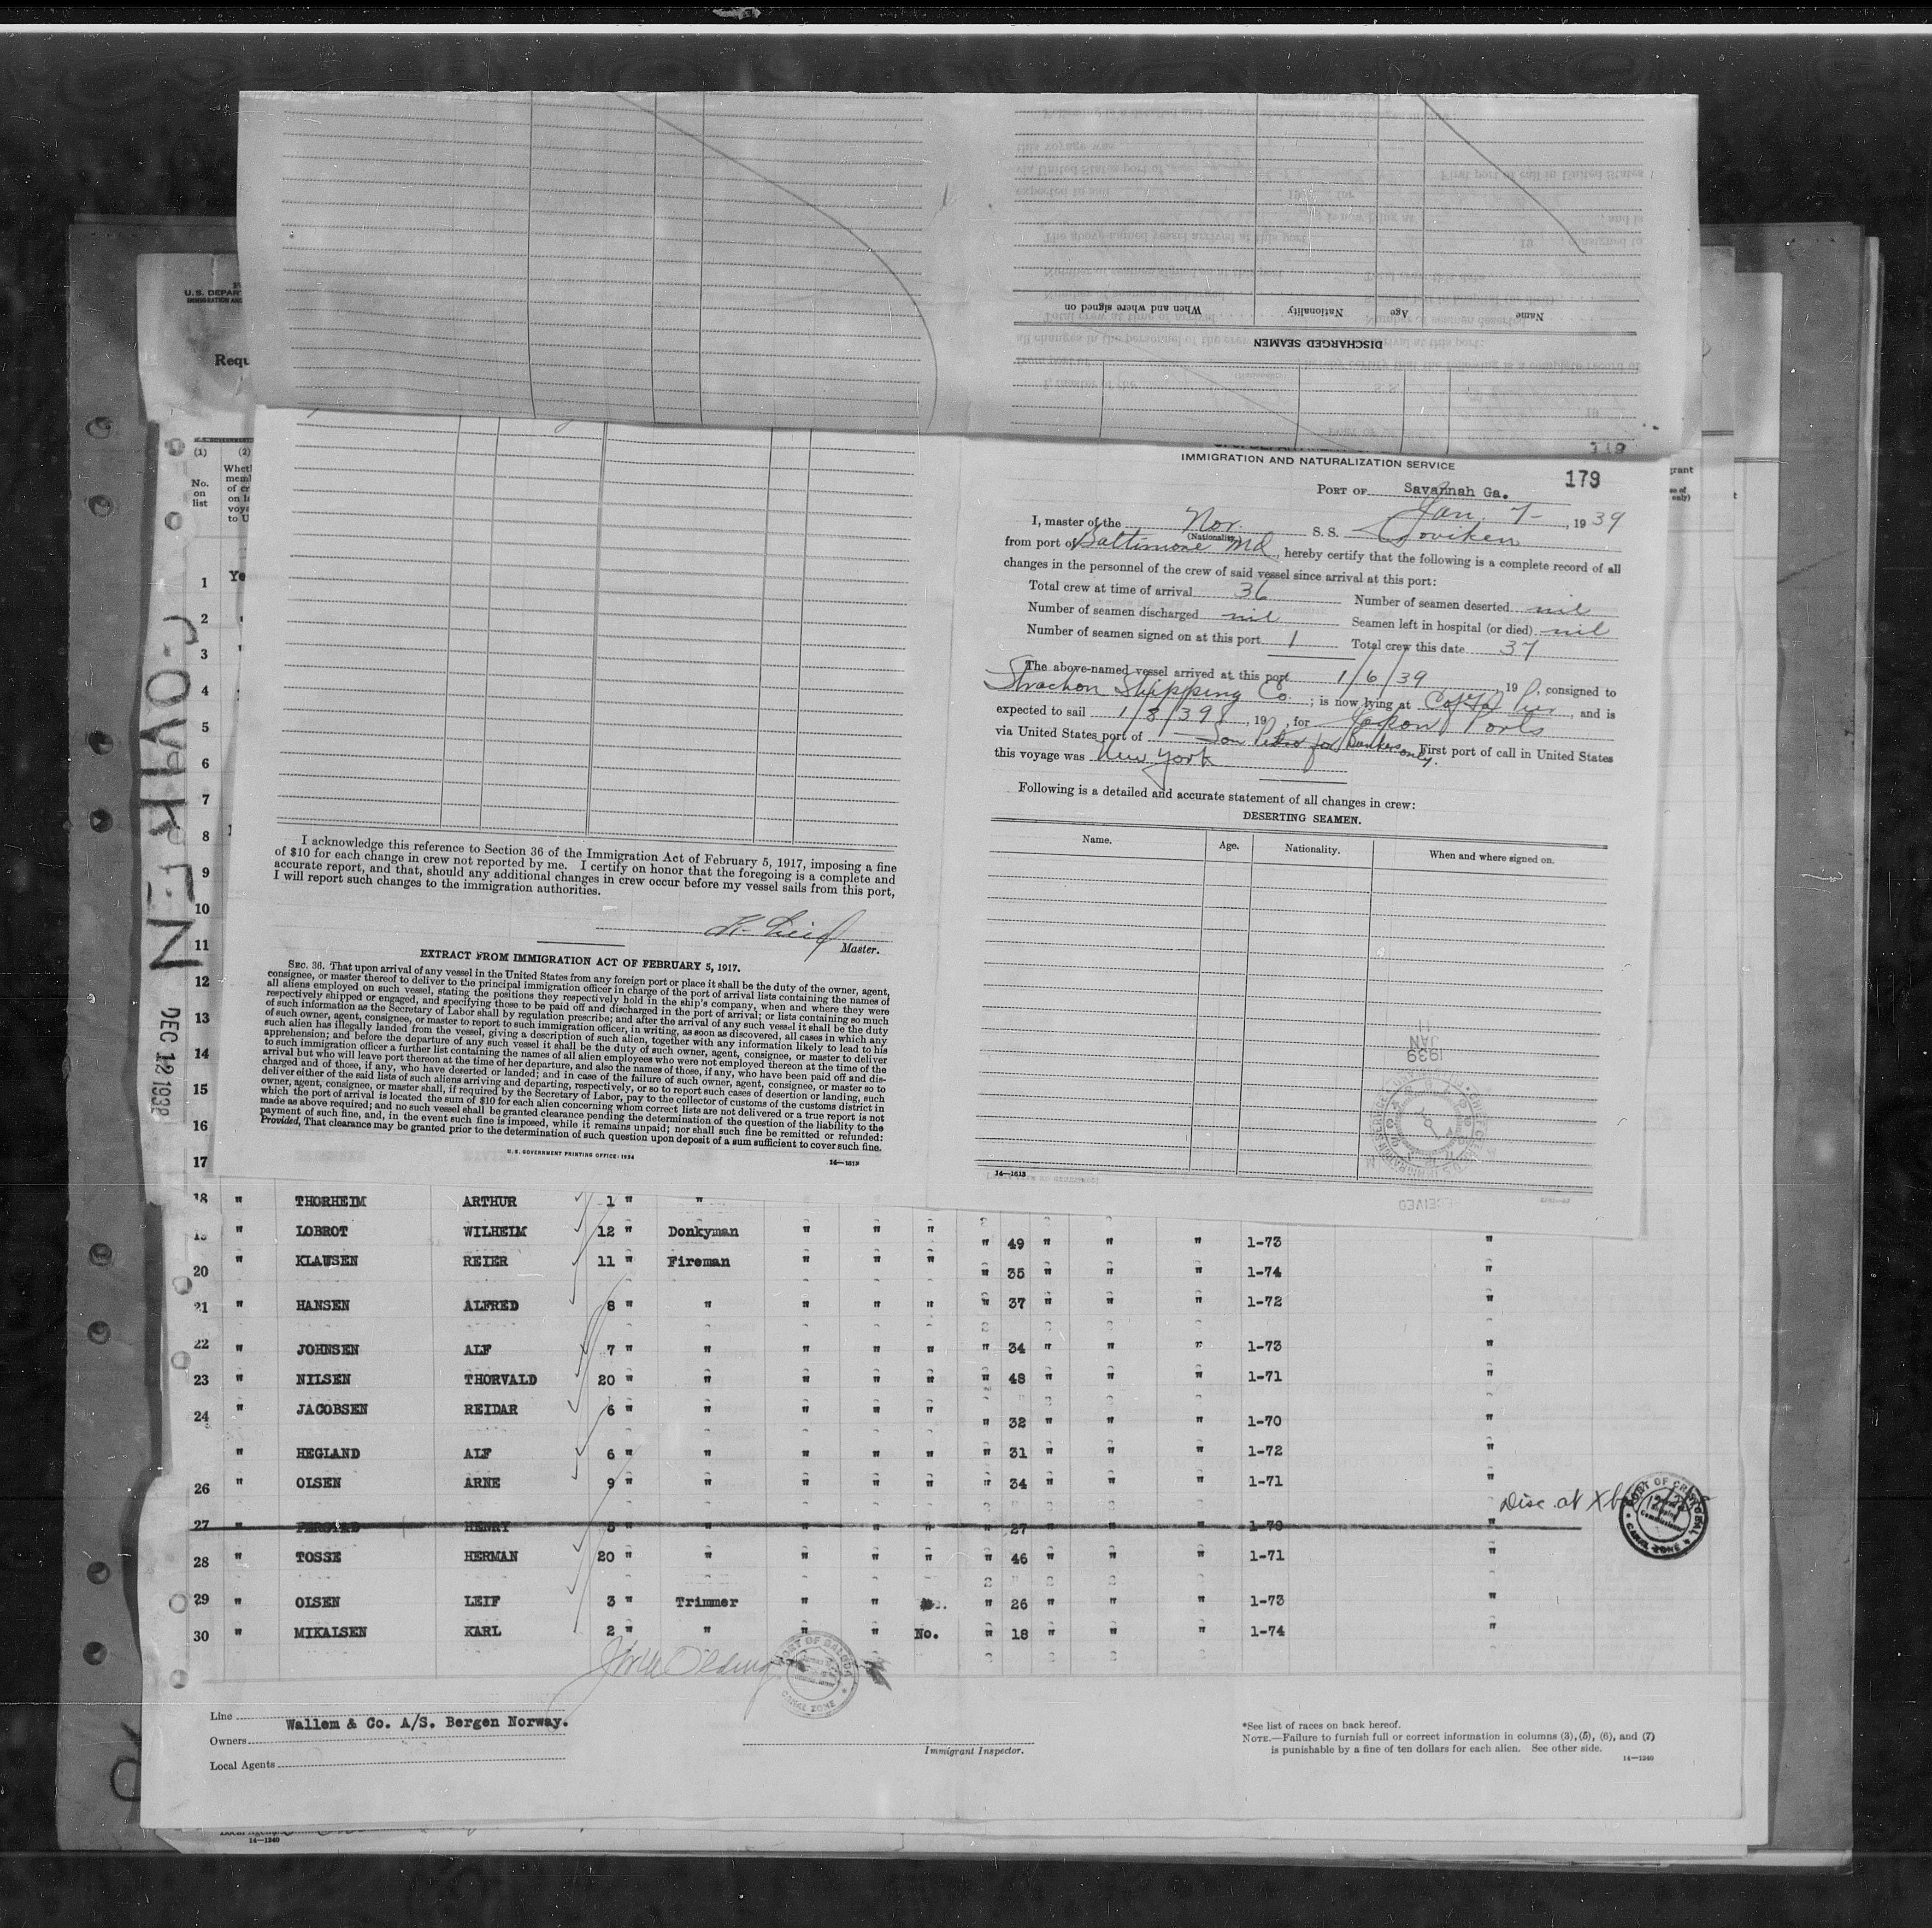 U.S. DEPAR
IMMIGRATION AN
Requ
(1) (2)
No. on list
Whet
memb
of cr
on la
voya
to U
1 Ye
2
3
4
5
6
7
8
9
10
11
12
13
14
15
16
17
GOVIKEN
DEC 12 1938
When and where signed on Nationality Age Name
DISCHARGED SEAMEN
I acknowledge this reference to Section 36 of the Immigration Act of February 5, 1917, imposing a fine
of $10 for each change in crew not reported by me. I certify on honor that the foregoing is a complete and
accurate report, and that, should any additional changes in crew occur before my vessel sails from this port,
I will report such changes to the immigration authorities.
Master.
EXTRACT FROM IMMIGRATION ACT OF FEBRUARY 5, 1917.
SEC. 36. That upon arrival of any vessel in the United States from any foreign port or place it shall be the duty of the owner, agent,
consignee, or master thereof to deliver to the principal immigration officer in charge of the port of arrival lists containing the names of
all aliens employed on such vessel, stating the positions they respectively hold in the ship's company, when and where they were
respectively shipped or engaged, and specifying those to be paid off and discharged in the port of arrival; or lists containing so much
of such information as the Secretary of Labor shall by regulation prescribe; and after the arrival of any such vessel it shall be the duty
of such owner, agent, consignee, or master to report to such immigration officer, in writing, as soon as discovered, all cases in which any
such alien has illegally landed from the vessel, giving a description of such alien, together with any information likely to lead to his
apprehension; and before the departure of any such vessel it shall be the duty of such owner, agent, consignee, or master to deliver
to such immigration officer a further list containing the names of all alien employees who were not employed thereon at the time of the
arrival but who will leave port thereon at the time of her departure, and also the names of those, if any, who have been paid off and dis-
charged and of those, if any, who have deserted or landed; and in case of the failure of such owner, agent, consignee, or master so to
deliver either of the said lists of such aliens arriving and departing, respectively, or so to report such cases of desertion or landing, such
owner, agent, consignee, or master shall, if required by the Secretary of Labor, pay to the collector of customs of the customs district in
which the port of arrival is located the sum of $10 for each alien concerning whom correct lists are not delivered or a true report is not
made as above required; and no such vessel shall be granted clearance pending the determination of the question of the liability to the
payment of such fine, and, in the event such fine is imposed, while it remains unpaid; nor shall such fine be remitted or refunded:
Provided, That clearance may be granted prior to the determination of such question upon deposit of a sum sufficient to cover such fine.
U. S. GOVERNMENT PRINTING OFFICE: 1934 14—1613
IMMIGRATION AND NATURALIZATION SERVICE
179
PORT OF Savannah Ga.
Jan. 7- , 1939
I, master of the Nor. S. S. Goviken
(Nationality)
from port of Baltimore Md, hereby certify that the following is a complete record of all
changes in the personnel of the crew of said vessel since arrival at this port:
Total crew at time of arrival 36 Number of seamen deserted nil
Number of seamen discharged nil Seamen left in hospital (or died) nil
Number of seamen signed on at this port 1 Total crew this date 37
The above-named vessel arrived at this port 1/6/39, 19 ; consigned to
Strachan Shipping Co. ; is now lying at Pier, and is
expected to sail 1/8/39, 19 , for Japan Ports
via United States port of San Pedro for Bunkers only. First port of call in United States
this voyage was New York
Following is a detailed and accurate statement of all changes in crew:
DESERTING SEAMEN.
Name. Age. Nationality. When and where signed on.
JAN 11 1939
RECEIVED
14—1613
18 " THORHEIM ARTHUR 1 " "
19 " LOBROT WILHEIM 12 " Donkyman " " " " 49 " " " 1-73 "
20 " KLAUSEN REIER 11 " Fireman " " " " 35 " " " 1-74 "
21 " HANSEN ALFRED 8 " " " " " " 37 " " " 1-72 "
22 " JOHNSEN ALF 7 " " " " " " 34 " " " 1-73 "
23 " NILSEN THORVALD 20 " " " " " " 48 " " " 1-71 "
24 " JACOBSEN REIDAR 6 " " " " " " 32 " " " 1-70 "
" HEGLAND ALF 6 " " " " " " 31 " " " 1-72 "
26 " OLSEN ARNE 9 " " " " " " 34 " " " 1-71 "
Disc. at
PORT OF CRISTOBAL CANAL ZONE
27 " HENRY 5 " " " " " " 27 " " " 1-70 "
28 " TOSSE HERMAN 20 " " " " " " 46 " " " 1-71 "
29 " OLSEN LEIF 3 " Trimmer " " " 26 " " " 1-73 "
30 " MIKALSEN KARL 2 " " " " No. " 18 " " " 1-74 "
PORT OF BALBOA CANAL ZONE
Line
Wallem & Co. A/S. Bergen Norway.
Owners
Local Agents
Immigrant Inspector.
*See list of races on back hereof.
NOTE.—Failure to furnish full or correct information in columns (3), (5), (6), and (7)
is punishable by a fine of ten dollars for each alien. See other side.
14—1240
14—1240